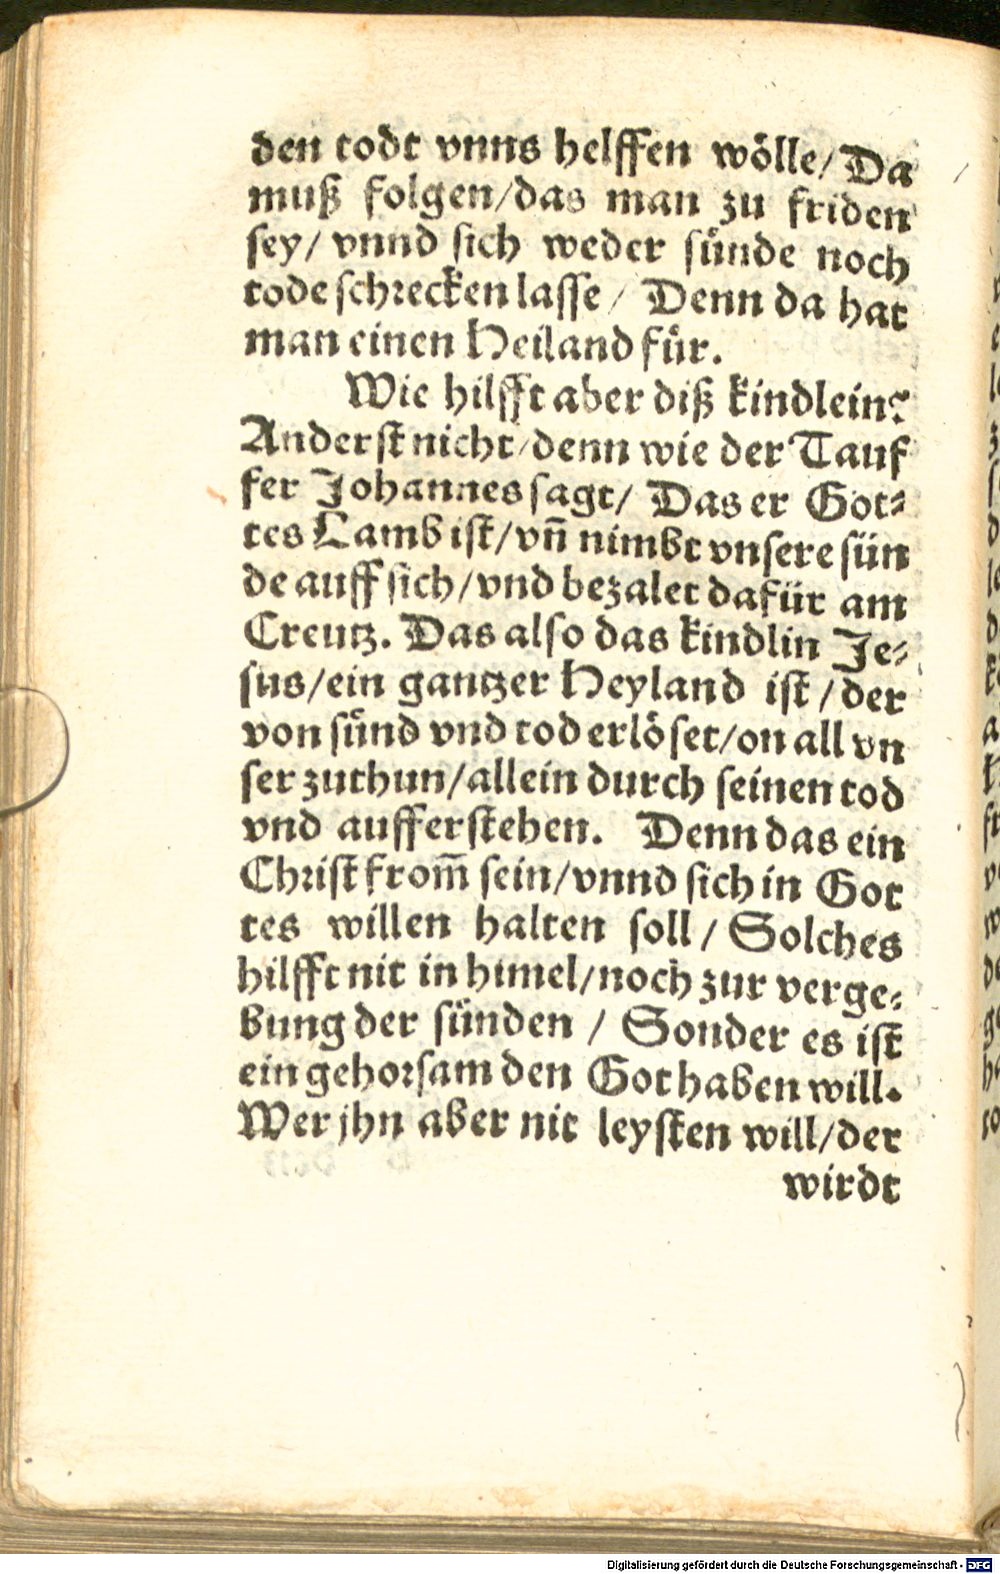 den todt vnns helffen wölle/ Da
muß folgen/das man zu friden
sey/ vnnd sich weder sünde noch
tode schrecken lasse / Denn da hat
man einen Heiland für.
Wie hilfft aber diß kindlein?
Anderst nicht/denn wie der Tauf
fer Johannes sagt/ Das er Got⸗
tes Lamb ist/vñ nimbt vnsere sün
de auff sich/vnd bezalet dafür am
Creutz. Das also das kindlin Je⸗
sus/ein gantzer Heyland ist /der
von sünd vnd tod erlöset/on all vn
ser zuthun/allein durch seinen tod
vnd aufferstehen. Denn das ein
Christ from̄ sein/vnnd sich in Got
tes willen halten soll / Solches
hilfft nit in himel/noch zur verge⸗
bung der sünden / Sonder es ist
ein gehorsam den Got haben will.
Wer jhn aber nit leysten will/der
wirdt
Digitalisierung gefördert durch die Deutsche Forschungsgemeinschaft - DFG